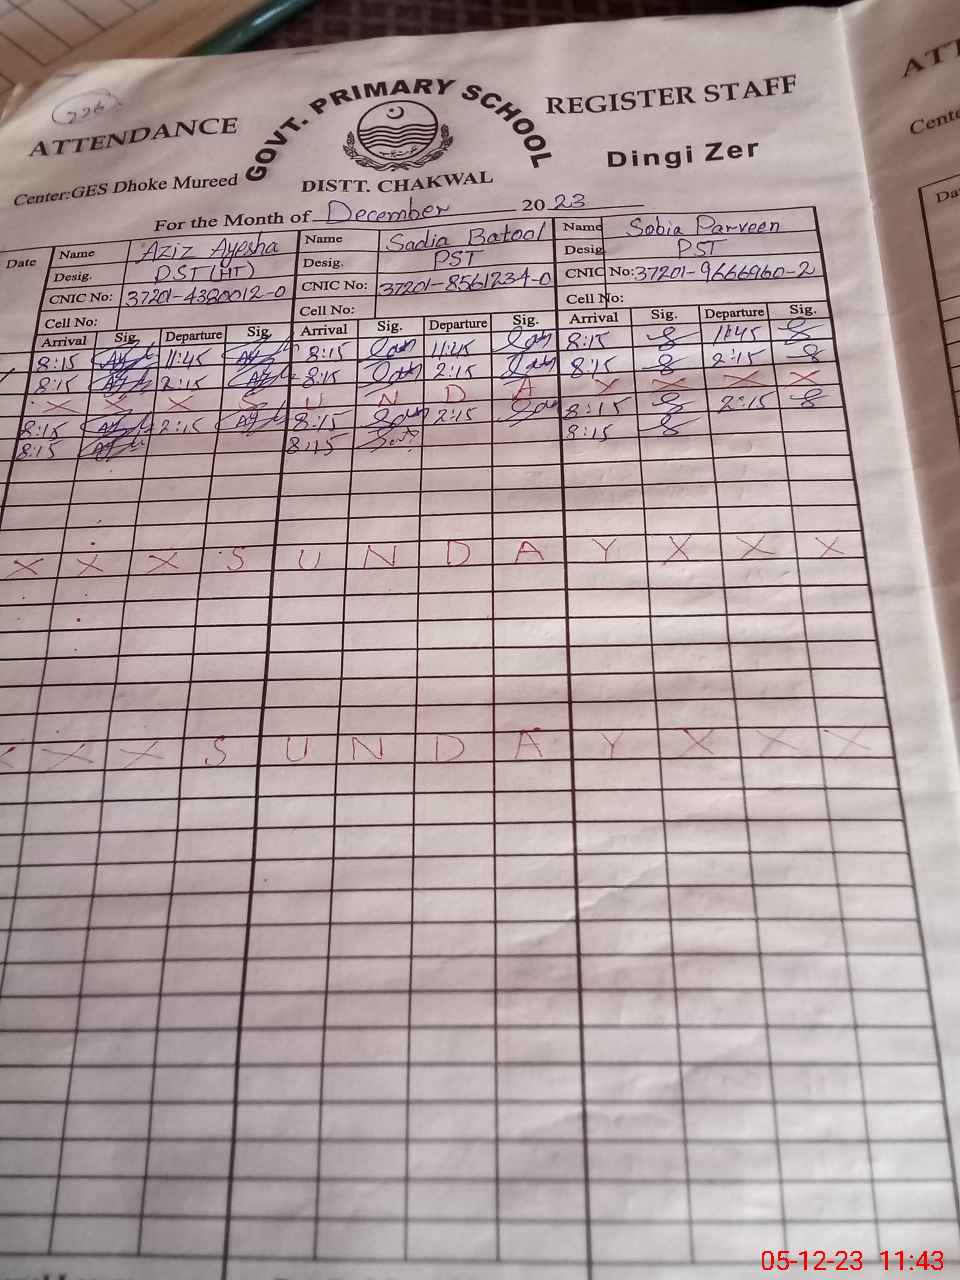 226
ATTENDANCE
GOVT. PRIMARY SCHOOL
REGISTER STAFF
Center:GES Dhoke Mureed
DISTT. CHAKWAL
Dingi Zer
For the Month of December 2023
Date
Name Aziz Ayesha Name Sadia Batool Name Sobia Parveen
Desig. PST (HT) Desig. PST Desig PST
CNIC No: 37201-4380012-0 CNIC No: 37201-8561234-0 CNIC No: 37201-9666960-2
Cell No: Cell No: Cell No:
Arrival Sig. Departure Sig. Arrival Sig. Departure Sig. Arrival Sig. Departure Sig.
8:15 11:45 8:15 11:45 8:15 11:45
8:15 2:15 8:15 2:15 8:15 2:15
X X X S U N D A Y X X X
8:15 2:15 8:15 2:15 8:15 2:15
8:15 8:15 8:15
X X X S U N D A Y X X X
X X X S U N D A Y X X X
ATT
Cente
Da
05-12-23 11:43